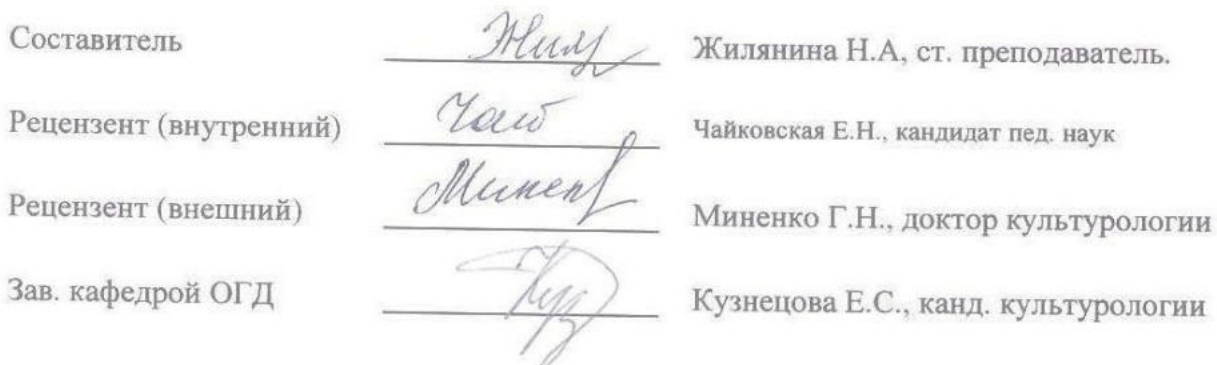 Составитель Жилянина Н.А, ст. преподаватель.
Рецензент (внутренний) Чайковская Е.Н., кандидат пед. наук
Рецензент (внешний) Миненко Г.Н., доктор культурологии
Зав. кафедрой ОГД Кузнецова Е.С., канд. культурологии